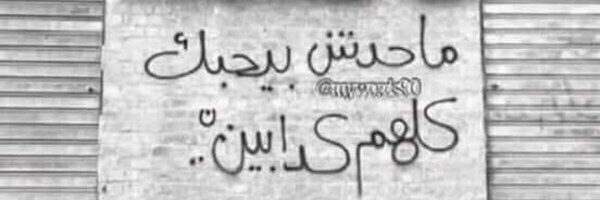 ماحدش بيحبك
@mywords90
كلهم كدابين..